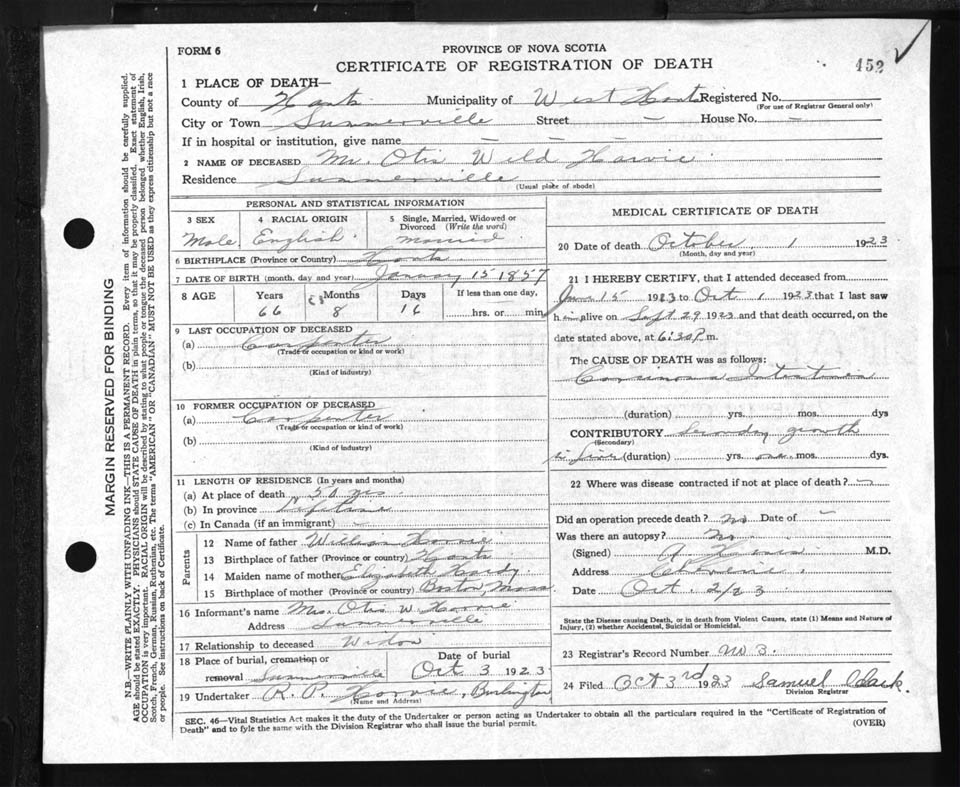 FORM 6
PROVINCE OF NOVA SCOTIA
CERTIFICATE OF REGISTRATION OF DEATH
452
1 PLACE OF DEATH—
County of Hants Municipality of West Hants Registered No.
(For use of Registrar General only)
City or Town Summerville Street — House No. —
If in hospital or institution, give name — — — —
2 NAME OF DECEASED Mr. Otis Wild Harvie
Residence Summerville
(Usual place of abode)
PERSONAL AND STATISTICAL INFORMATION
3 SEX
Male
4 RACIAL ORIGIN
English
5 Single, Married, Widowed or
Divorced (Write the word)
Married
6 BIRTHPLACE (Province or Country) Hants
7 DATE OF BIRTH (month, day and year) January 15 1857
8 AGE Years Months Days If less than one day,
66 8 16 hrs. or min.
9 LAST OCCUPATION OF DECEASED
(a) Carpenter
(Trade or occupation or kind or work)
(b)
(Kind of industry)
10 FORMER OCCUPATION OF DECEASED
(a) Carpenter
(Trade or occupation or kind of work)
(b)
(Kind of industry)
11 LENGTH OF RESIDENCE (In years and months)
(a) At place of death 50 yrs
(b) In province Lifetime
(c) In Canada (if an immigrant) —
Parents
12 Name of father William Harvie
13 Birthplace of father (Province or country) Hants
14 Maiden name of mother Elizabeth Hardy
15 Birthplace of mother (Province or country) Boston, Mass
16 Informant's name Mrs. Otis W. Harvie
Address Summerville
17 Relationship to deceased Widow
18 Place of burial, cremation or
removal Summerville
Date of burial
Oct 3 1923
19 Undertaker R. P. Harvie, Burlington
(Name and Address)
MEDICAL CERTIFICATE OF DEATH
20 Date of death October 1 1923
(Month, day and year)
21 I HEREBY CERTIFY, that I attended deceased from
June 15 1923 to Oct 1 1923 that I last saw
him alive on Sept 29 1923 and that death occurred, on the
date stated above, at 6:30 P.m.
The CAUSE OF DEATH was as follows:
Carcinoma Intestines
(duration) yrs. mos. dys
CONTRIBUTORY Secondary growth
(Secondary)
in liver (duration) yrs. one mos. dys.
22 Where was disease contracted if not at place of death? —
Did an operation precede death? no Date of —
Was there an autopsy? No
(Signed) M.D.
Address
Date Oct. 2/23
State the Disease causing Death, or in death from Violent Causes, state (1) Means and Nature of
Injury, (2) whether Accidental, Suicidal or Homicidal.
23 Registrar's Record Number No 3.
24 Filed Oct 3rd 1923 Samuel Clark.
Division Registrar
SEC. 46—Vital Statistics Act makes it the duty of the Undertaker or person acting as Undertaker to obtain all the particulars required in the "Certificate of Registration of
Death" and to fyle the same with the Division Registrar who shall issue the burial permit.
(OVER)
MARGIN RESERVED FOR BINDING
N.B.—WRITE PLAINLY WITH UNFADING INK—THIS IS A PERMANENT RECORD. Every item of information should be carefully supplied.
AGE should be stated EXACTLY. PHYSICIANS should STATE CAUSE OF DEATH in plain terms, so that it may be properly classified. Exact statement of
OCCUPATION is very important. RACIAL ORIGIN will be described by stating to what people or tongue the deceased person belonged whether English, Irish,
Scotch, French, German, Russian, Ruthenian, etc. The terms "AMERICAN" OR "CANADIAN" MUST NOT BE USED as they express citizenship but not a race
or people. See instructions on back of Certificate.